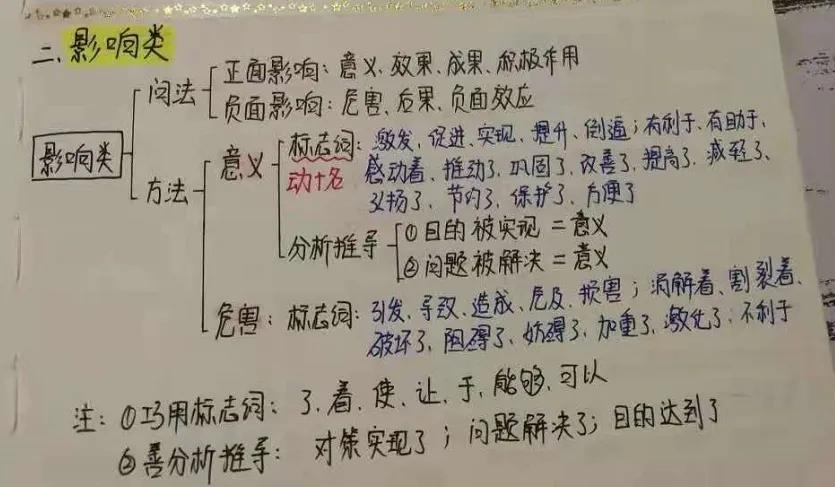 二、影响类
影响类
问法
正面影响：意义、效果、成果、积极作用
负面影响：危害、后果、负面效应
方法
意义
动十名
标志词：激发、促进、实现、提升、倒逼；有利于、有助于、
感动着、推动了、巩固了、改善了、提高了、减轻了、
义扬了、节约了、保护了、方便了
分析推导
①目的被实现＝意义
②问题被解决＝意义
危害：标志词：引发、导致、造成、危及、损害；消解着、割裂着、
破坏了、阻碍了、妨碍了、加重了、激化了、不利于
注：①巧用标志词：了、着、使、让、于、能够、可以
②善分析推导：对策实现了；问题解决了；目的达到了